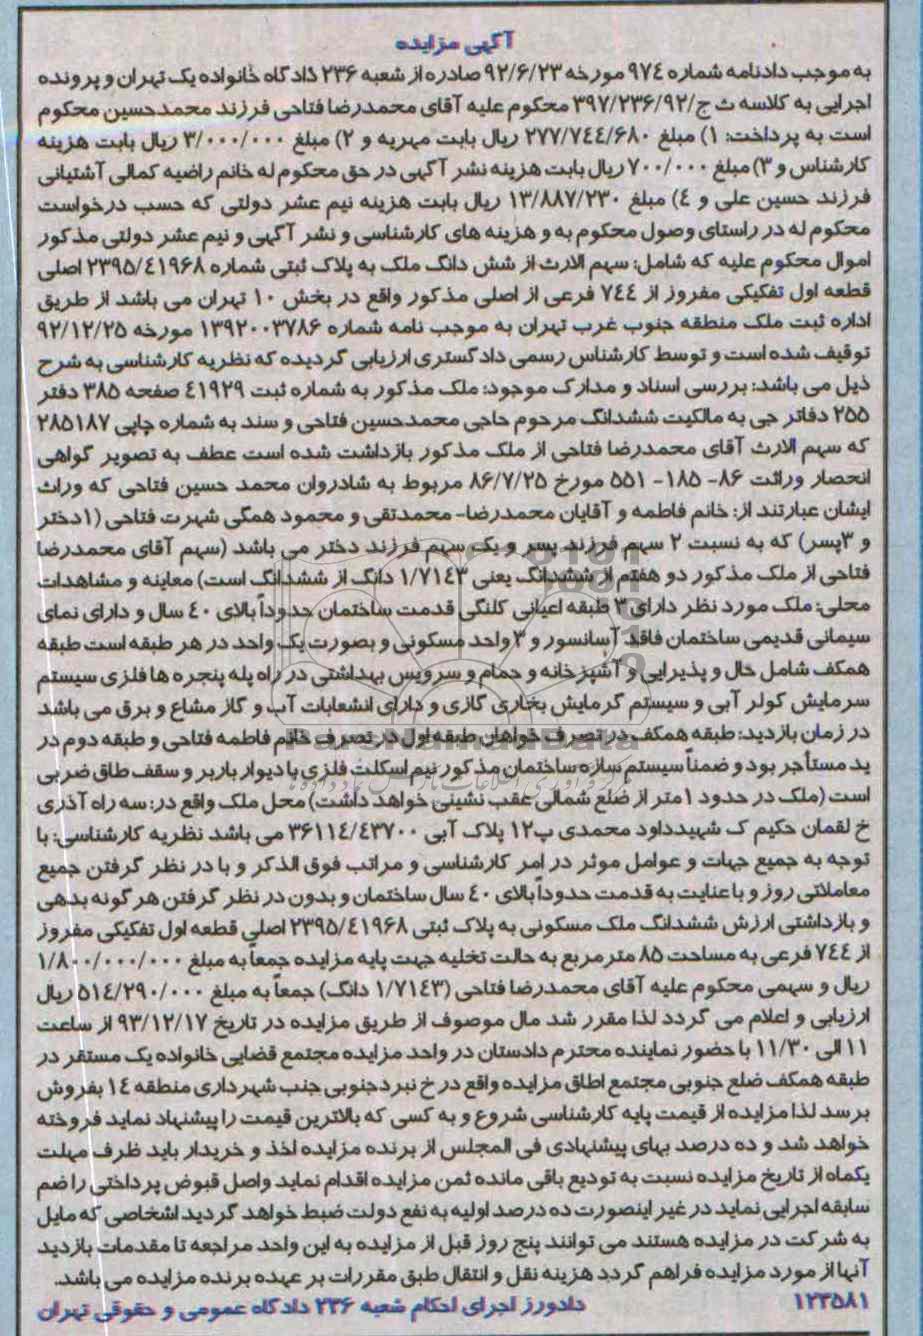 آگهی مزایده
به موجب دادنامه شماره ۹۷۴ مورخه ۹۲/۶/۲۳ صادره از شعبه ۲۳۶ دادگاه خانواده یک تهران و پرونده
اجرایی به کلاسه ث ج/۳۹۷/۲۳۶/۹۲ محکوم علیه آقای محمدرضا فتاحی فرزند محمدحسین محکوم
است به پرداخت: ۱) مبلغ ۲۷۷/۷۴۴/۶۸۰ ریال بابت مهریه و ۲) مبلغ ۳/۰۰۰/۰۰۰ ریال بابت هزینه
کارشناس و ۳) مبلغ ۷۰۰/۰۰۰ ریال بابت هزینه نشر آگهی در حق محکوم له خانم راضیه کمالی آشتیانی
فرزند حسین علی و ٤) مبلغ ۱۳/۸۸۷/۲۳۰ ریال بابت هزینه نیم عشر دولتی که حسب درخواست
محکوم له در راستای وصول محکوم به و هزینه های کارشناسی و نشر آگهی و نیم عشر دولتی مذکور
اموال محکوم علیه که شامل: سهم الارث از شش دانگ ملک به پلاک ثبتی شماره ۲۳۹۵/٤۱۹۶۸ اصلی
قطعه اول تفکیکی مفروز از ۷٤٤ فرعی از اصلی مذکور واقع در بخش ۱۰ تهران می باشد از طریق
اداره ثبت ملک منطقه جنوب غرب تهران به موجب نامه شماره ۱۳۹۲۰۰۳۷۸۶ مورخه ۹۲/۱۲/۲۵
توقیف شده است و توسط کارشناس رسمی دادگستری ارزیابی گردیده که نظریه کارشناسی به شرح
ذیل می باشد: بررسی اسناد و مدارک موجود: ملک مذکور به شماره ثبت ٤۱۹۲۹ صفحه ۳۸۵ دفتر
۲۵۵ دفاتر جی به مالکیت ششدانگ مرحوم حاجی محمدحسین فتاحی و سند به شماره چاپی ۲۸۵۱۸۷
که سهم الارث آقای محمدرضا فتاحی از ملک مذکور بازداشت شده است عطف به تصویر گواهی
انحصار وراثت ۸۶- ۱۸۵- ۵۵۱ مورخ ۸۶/۷/۲۵ مربوط به شادروان محمد حسین فتاحی که وراث
ایشان عبارتند از: خانم فاطمه و آقایان محمدرضا- محمدتقی و محمود همگی شهرت فتاحی (۱دختر
و ۳پسر) که به نسبت ۲ سهم فرزند پسر و یک سهم فرزند دختر می باشد (سهم آقای محمدرضا
فتاحی از ملک مذکور دو هفتم از ششدانگ یعنی ۱/۷۱٤۳ دانگ از ششدانگ است) معاینه و مشاهدات
محلی: ملک مورد نظر دارای ۳ طبقه اعیانی کلنگی قدمت ساختمان حدوداً بالای ٤۰ سال و دارای نمای
سیمانی قدیمی ساختمان فاقد آسانسور و ۳ واحد مسکونی و بصورت یک واحد در هر طبقه است طبقه
همکف شامل حال و پذیرایی و آشپزخانه و حمام و سرویس بهداشتی در راه پله پنجره ها فلزی سیستم
سرمایش کولر آبی و سیستم گرمایش بخاری گازی و دارای انشعابات آب و گاز مشاع و برق می باشد
در زمان بازدید: طبقه همکف در تصرف خواهان طبقه اول در تصرف خانم فاطمه فتاحی و طبقه دوم در
ید مستأجر بود و ضمناً سیستم سازه ساختمان مذکور نیم اسکلت فلزی با دیوار باربر و سقف طاق ضربی
است (ملک در حدود ۱متر از ضلع شمالی عقب نشینی خواهد داشت) محل ملک واقع در: سه راه آذری
خ لقمان حکیم ک شهیدداود محمدی پ۱۲ پلاک آبی ۳۶۱۱٤/٤۳۷۰۰ می باشد نظریه کارشناسی: با
توجه به جمیع جهات و عوامل موثر در امر کارشناسی و مراتب فوق الذکر و با در نظر گرفتن جمیع
معاملاتی روز و با عنایت به قدمت حدوداً بالای ٤۰ سال ساختمان و بدون در نظر گرفتن هر گونه بدهی
و بازداشتی ارزش ششدانگ ملک مسکونی به پلاک ثبتی ۲۳۹۵/٤۱۹۶۸ اصلی قطعه اول تفکیکی مفروز
از ۷٤٤ فرعی به مساحت ۸۵ مترمربع به حالت تخلیه جهت پایه مزایده جمعاً به مبلغ ۱/۸۰۰/۰۰۰/۰۰۰
ریال و سهمی محکوم علیه آقای محمدرضا فتاحی (۱/۷۱٤۳ دانگ) جمعاً به مبلغ ۵۱٤/۲۹۰/۰۰۰ ریال
ارزیابی و اعلام می گردد لذا مقرر شد مال موصوف از طریق مزایده در تاریخ ۹۳/۱۲/۱۷ از ساعت
۱۱ الی ۱۱/۳۰ با حضور نماینده محترم دادستان در واحد مزایده مجتمع قضایی خانواده یک مستقر در
طبقه همکف ضلع جنوبی مجتمع اطاق مزایده واقع در خ نبردجنوبی جنب شهرداری منطقه ۱٤ بفروش
برسد لذا مزایده از قیمت پایه کارشناسی شروع و به کسی که بالاترین قیمت را پیشنهاد نماید فروخته
خواهد شد و ده درصد بهای پیشنهادی فی المجلس از برنده مزایده اخذ و خریدار باید ظرف مهلت
یکماه از تاریخ مزایده نسبت به تودیع باقی مانده ثمن مزایده اقدام نماید واصل قبوض پرداختی را ضم
سابقه اجرایی نماید در غیر اینصورت ده درصد اولیه به نفع دولت ضبط خواهد گردید اشخاصی که مایل
به شرکت در مزایده هستند می توانند پنج روز قبل از مزایده به این واحد مراجعه تا مقدمات بازدید
آنها از مورد مزایده فراهم گردد هزینه نقل و انتقال طبق مقررات بر عهده برنده مزایده می باشد.
۱۲۳۵۸۱ دادورز اجرای احکام شعبه ۲۳۶ دادگاه عمومی و حقوقی تهران
ParsNamadData